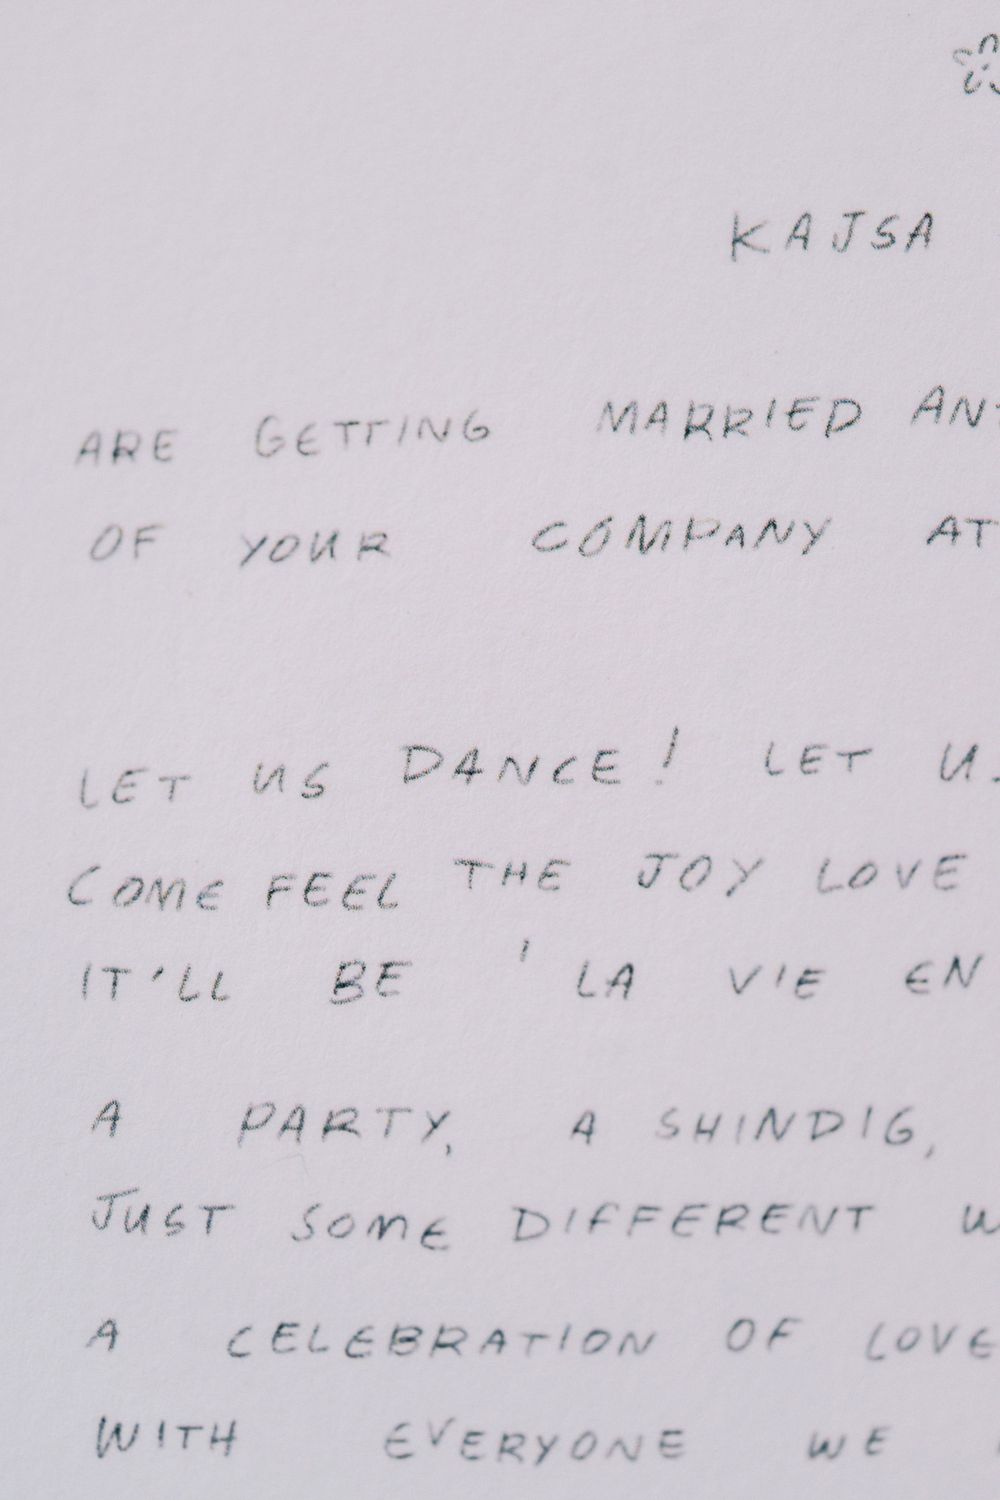 KAJSA
ARE GETTING MARRIED
OF YOUR COMPANY AT
LET US DANCE! LET
COME FEEL THE JOY LOVE
IT'LL BE 'LA VIE EN
A PARTY, A SHINDIG,
JUST SOME DIFFERENT
A CELEBRATION OF LOVE
WITH EVERYONE WE